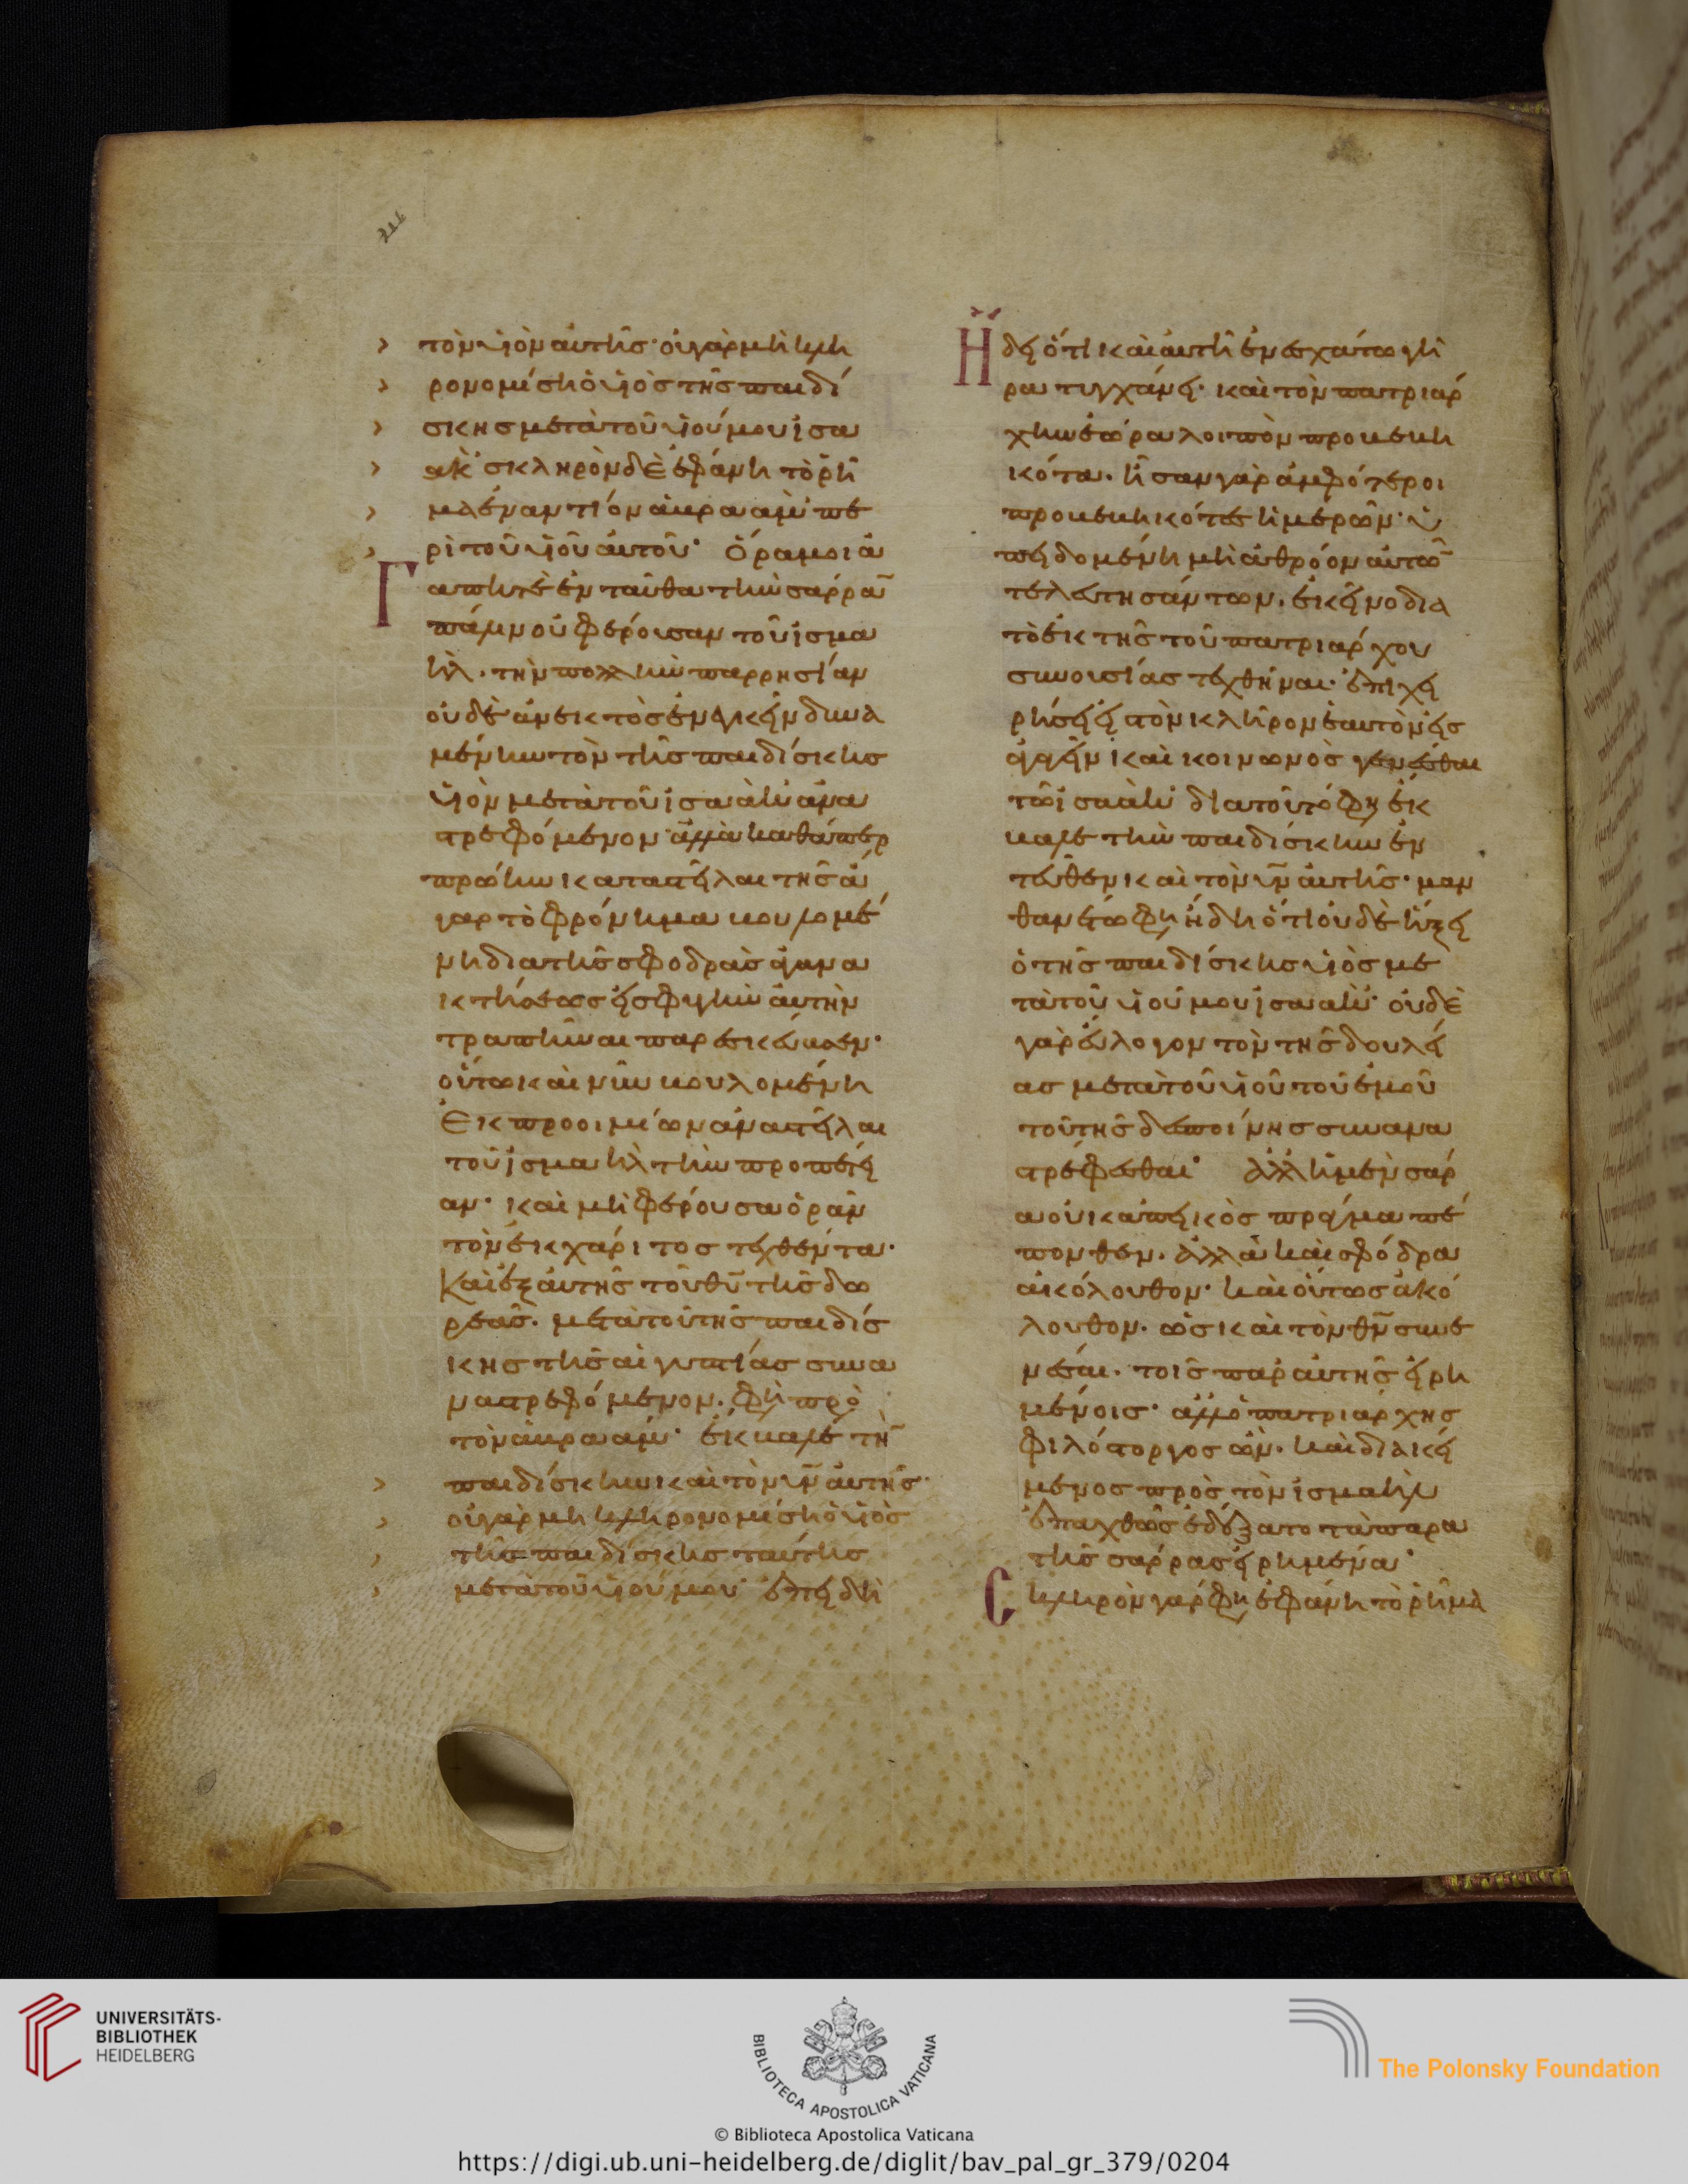 τὸν υἱὸν αὐτῆς· οὐ γὰρ μὴ κλη
ρονομήσῃ ὁ υἱὸς τῆς παιδί
σκης μετὰ τοῦ υἱοῦ μου ἰσα
ακ· σκληρὸν δὲ ἐφάνη τὸ ῥῆ
μα ἐναντίον ἀβραὰμ πε
ρὶ τοῦ υἱοῦ αὐτοῦ· Ὅρα μοι ἀ
γαπητὲ ἐνταῦθα τὴν σάρραν
μὴ φέρουσαν τοῦ ἰσμα
ὴλ· τὴν πολλὴν παρρησίαν
οὐδὲ ἀνεκτὸς ἐνεγκεῖν δυνα
μένην τὸν τῆς παιδίσκης
υἱὸν μετὰ τοῦ ἰσαὰκ ἀνα
τρεφόμενον ἀλλὰ καθάπερ
πρώην καταστεῖλαι τῆς ἄ
γαρ τὸ φρόνημα βουλομέ
νη διὰ τῆς σφοδρᾶς ἀγανα
κτήσεως εἰς φυγὴν αὐτὴν
τραπῆναι παρεσκεύασεν·
οὕτω καὶ νῦν βουλομένη
Ἐκ προοιμίων ἀναστεῖλαι
τοῦ ἰσμαὴλ τὴν προπέτει
αν· καὶ μὴ φέρουσα ὁρᾶν
τὸν ἐκ χάριτος τεχθέντα·
καὶ ἐξ αὐτῆς τοῦ θυ τῆς δω
ρεᾶς· μετὰ τοῦ τῆς παιδίσ
κης τῆς αἰγυπτίας συνα
νατρεφόμενον· φη πρὸ
τὸν ἀβραάμ· ἔκβαλε τὴν
παιδίσκην καὶ τὸν υν αὐτῆς·
οὐ γὰρ μὴ κληρονομήσῃ ὁ υἱὸς
τῆς παιδίσκης ταύτης
μετὰ τοῦ υἱοῦ μου· ἐπειδὴ
Ἤδει ὅτι καὶ αὐτὴ ἐν ἐσχάτω γή
ρα τυγχάνει· καὶ τὸν πατριάρ
χην ἑώρα λοιπὸν προβεβη
κότα· ἦσαν γὰρ ἀμφότεροι
προβεβηκότες ἡμερῶν· ὑ
πειδομένη μὴ ἀθρόον αὐτῶν
τελευτησάντων· ἐκεῖνο δια
τὸ ἐκ τῆς τοῦ πατριάρχου
συνουσίας τεχθῆναι· ἐπιχει
ρήσει εἰς τὸν κλῆρον ἑαυτὸν εἰσ
αγαγεῖν καὶ κοινωνὸς γενέσθαι
τῶ ἰσαάκ· διὰ τοῦτό φη ἔκ
βαλε τὴν παιδίσκην ἐν
τεῦθεν καὶ τὸν υν αὐτῆς· μαν
θανέτω φη ἤδη ὅτι οὐδὲ ἥξει
ὁ τῆς παιδίσκης υἱὸς με
τὰ τοῦ υἱοῦ μου ἰσαάκ· οὐδὲ
γὰρ εὔλογον τὸν τῆς δουλεί
ας μετὰ τοῦ υἱοῦ τοῦ ἐμοῦ
τοῦ τῆς δεσποίνης συνανα
τρέφεσθαι· ἀλλ ἡ μὲν σάρ
α οὐκ ἀπεικὸς πρᾶγμα πέ
πονθεν· ἀλλὰ καὶ σφόδρα
ἀκόλουθον· καὶ οὕτως ἀκό
λουθον· ὡς καὶ τὸν θν συνε
νέσαι· τοῖς παρ αὐτῆς εἰρη
μένοις· ἀλλ ὁ πατριάρχης
φιλόστοργος ὢν· καὶ διακεί
μενος πρὸς τὸν ἰσμαήλ
ἐπαχθῶς ἐδέξατο τὰ παρὰ
τῆς σάρρας εἰρημένα·
Σκληρὸν γάρ φη ἐφάνη τὸ ῥῆμα
UNIVERSITÄTS-
BIBLIOTHEK
HEIDELBERG
BIBLIOTECA APOSTOLICA VATICANA
The Polonsky Foundation
© Biblioteca Apostolica Vaticana
https://digi.ub.uni-heidelberg.de/diglit/bav_pal_gr_379/0204